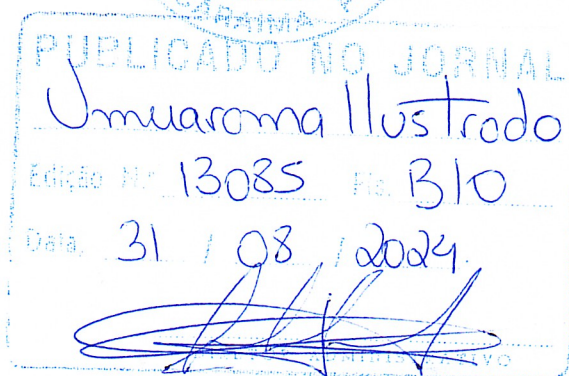 PUBLICADO NO JORNAL
Umuarama Ilustrado
Edição N.º 13085 Fls. B10
Data, 31 / 08 / 2024.